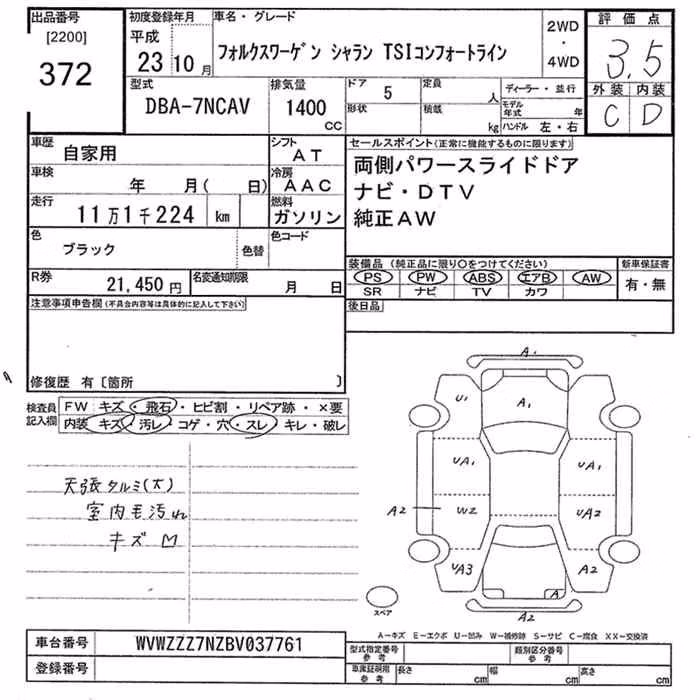 出品番号
[2200]
372
初度登録年月
平成
23 10 月
車名・グレード
フォルクスワーゲン シャラン TSIコンフォートライン
2WD
・
4WD
評価点
3.5
外装 内装
C D
型式
DBA-7NCAV
排気量
1400
CC
ドア 5
形状
定員
人
積載
kg
ディーラー・並行
モデル年式 年
ハンドル 左・右
車歴
自家用
シフト
AT
車検
年 月( 日)
冷房
AAC
走行
11万1千224 km
燃料
ガソリン
色
ブラック
色替
色コード
R券
21,450 円
名変通知期限
月 日
セールスポイント(正常に機能するものに限ります)
両側パワースライドドア
ナビ・DTV
純正AW
装備品 (純正品に限り○をつけてください)
新車保証書
PS PW ABS エアB AW
有・無
SR ナビ TV カワ
後日品
注意事項申告欄(不具合内容等は具体的に記入して下さい)
修復歴 有〔箇所 〕
検査員
記入欄
FW キズ・飛石・ヒビ割・リペア跡・×要
内装 キズ・汚レ・コゲ・穴・スレ・キレ・破レ
天張タルミ(大)
室内毛汚れ
キズ
A1
U1 A1
UA1 UA1
A2 W2 UA2
UA3 A2
A
A2
スペア
A-キズ E-エクボ U-凹み W-補修跡 S-サビ C-腐食 XX-交換済
車台番号 WVWZZZ7NZBV037761
登録番号
型式指定番号
参考
類別区分番号
参考
車庫証明用
参考
長さ cm 幅 cm 高さ cm